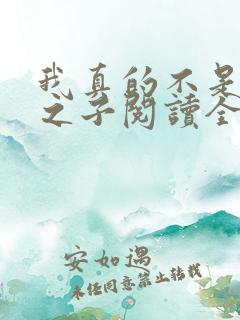 我真的不是
之子阅读全
安如遇
未经同意禁止转载